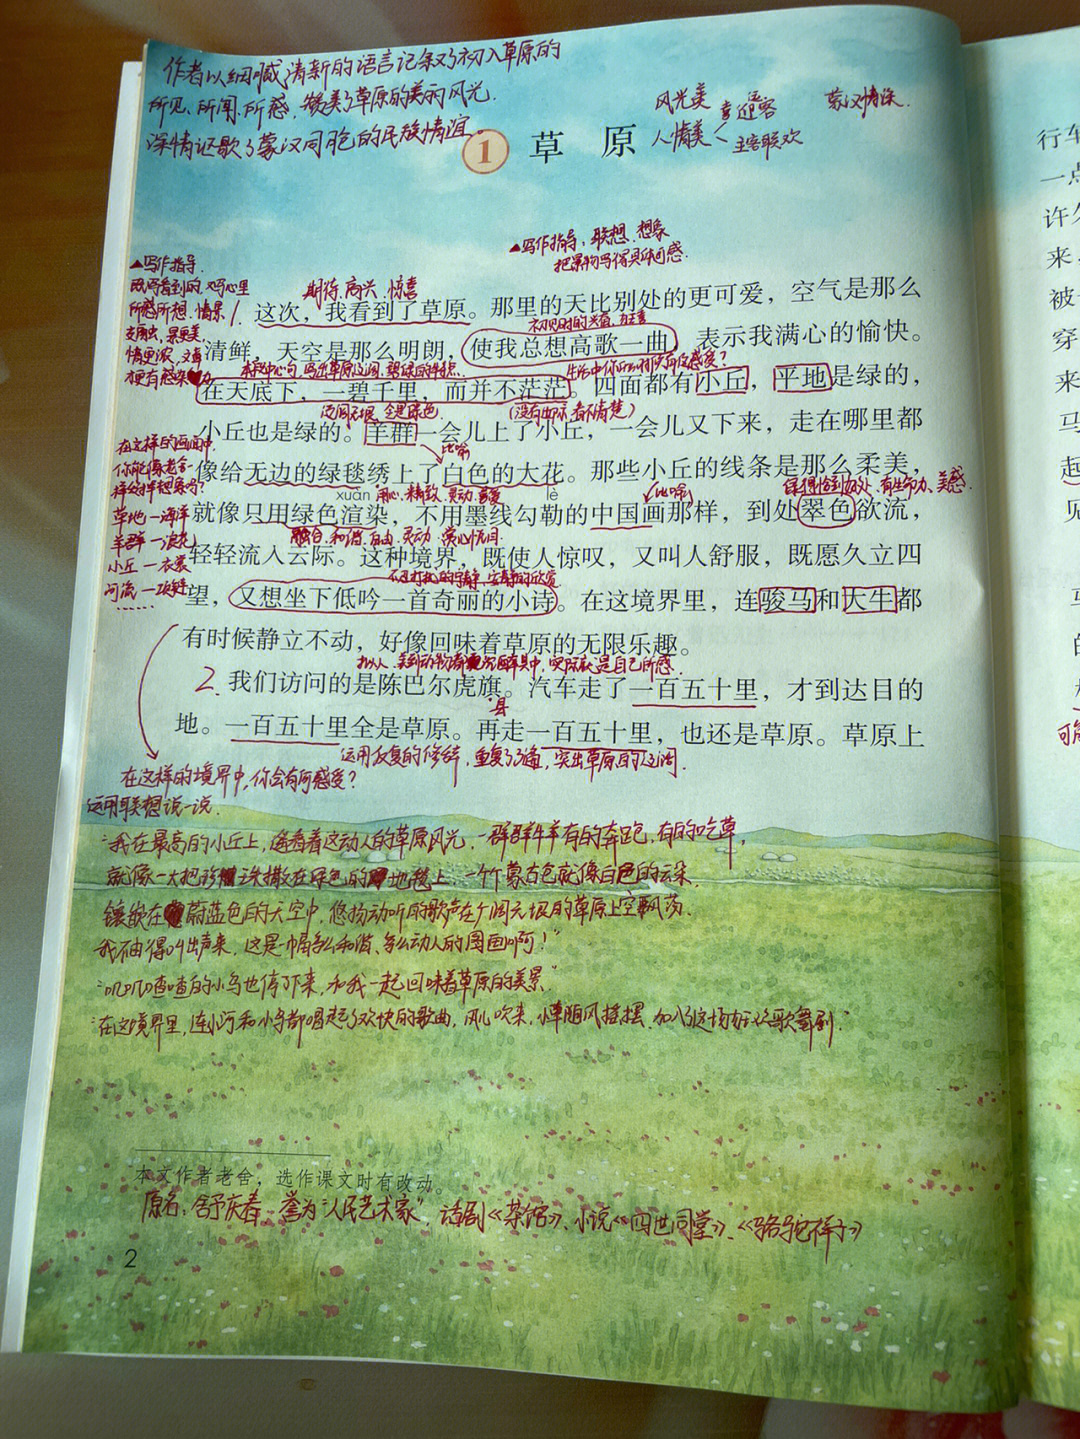 作者以细腻、清新的语言记叙了初入草原的
所见、所闻、所感，赞美了草原的美丽风光，
深情讴歌了蒙汉同胞的民族情谊。
风光美
人情美
喜迎远客
主客联欢
蒙汉情深.
1 草 原
▲写作指导：联想、想象
把景物写得具体可感.
▲写作指导.
既写看到的,又写心里
所感所想.情景
交融,景更美,
情更浓,文章
更有感染力
期待、高兴、惊喜
1. 这次，我看到了草原。那里的天比别处的更可爱，空气是那么
清鲜，天空是那么明朗，使我总想高歌一曲，表示我满心的愉快。
在天底下，一碧千里，而并不茫茫。四面都有小丘，平地是绿的，
(没有边际,看不清楚)
小丘也是绿的。羊群一会儿上了小丘，一会儿又下来，走在哪里都
比喻
在这样的画面中,
你能像老舍一
样这样想象吗?
草地—海洋
羊群—浪花
小丘—衣裳
河流—项链
……
像给无边的绿毯绣上了白色的大花。那些小丘的线条是那么柔美，
xuàn lè
比喻
就像只用绿色渲染，不用墨线勾勒的中国画那样，到处翠色欲流，
轻轻流入云际。这种境界，既使人惊叹，又叫人舒服，既愿久立四
望，又想坐下低吟一首奇丽的小诗。在这境界里，连骏马和大牛都
有时候静立不动，好像回味着草原的无限乐趣。
2. 我们访问的是陈巴尔虎旗。汽车走了一百五十里，才到达目的
县
地。一百五十里全是草原。再走一百五十里，也还是草原。草原上
运用反复的修辞,重复了3遍,突出草原的辽阔.
在这样的境界中,你会有何感受?
运用联想说一说.
“我在最高的小丘上,遥看着这动人的草原风光,一群群牛羊有的奔跑,有的吃草,
就像一大把珍珠撒在绿色的地毯上,一个个蒙古包就像白色的云朵,
镶嵌在蔚蓝色的天空中,悠扬动听的歌声在广阔无垠的草原上空飘荡.
我不由得叫出声来,这是一幅多么和谐、多么动人的图画啊!”
“叽叽喳喳的小鸟也停下来,和我一起回味着草原的美景.”
“在这境界里,连小河和小鸟都唱起了欢快的歌曲,风儿吹来,小草随风摇摆,加入了这场狂欢歌舞剧.”
本文作者老舍，选作课文时有改动。
原名:舒庆春.誉为“人民艺术家”,话剧《茶馆》、小说《四世同堂》、《骆驼祥子》
2